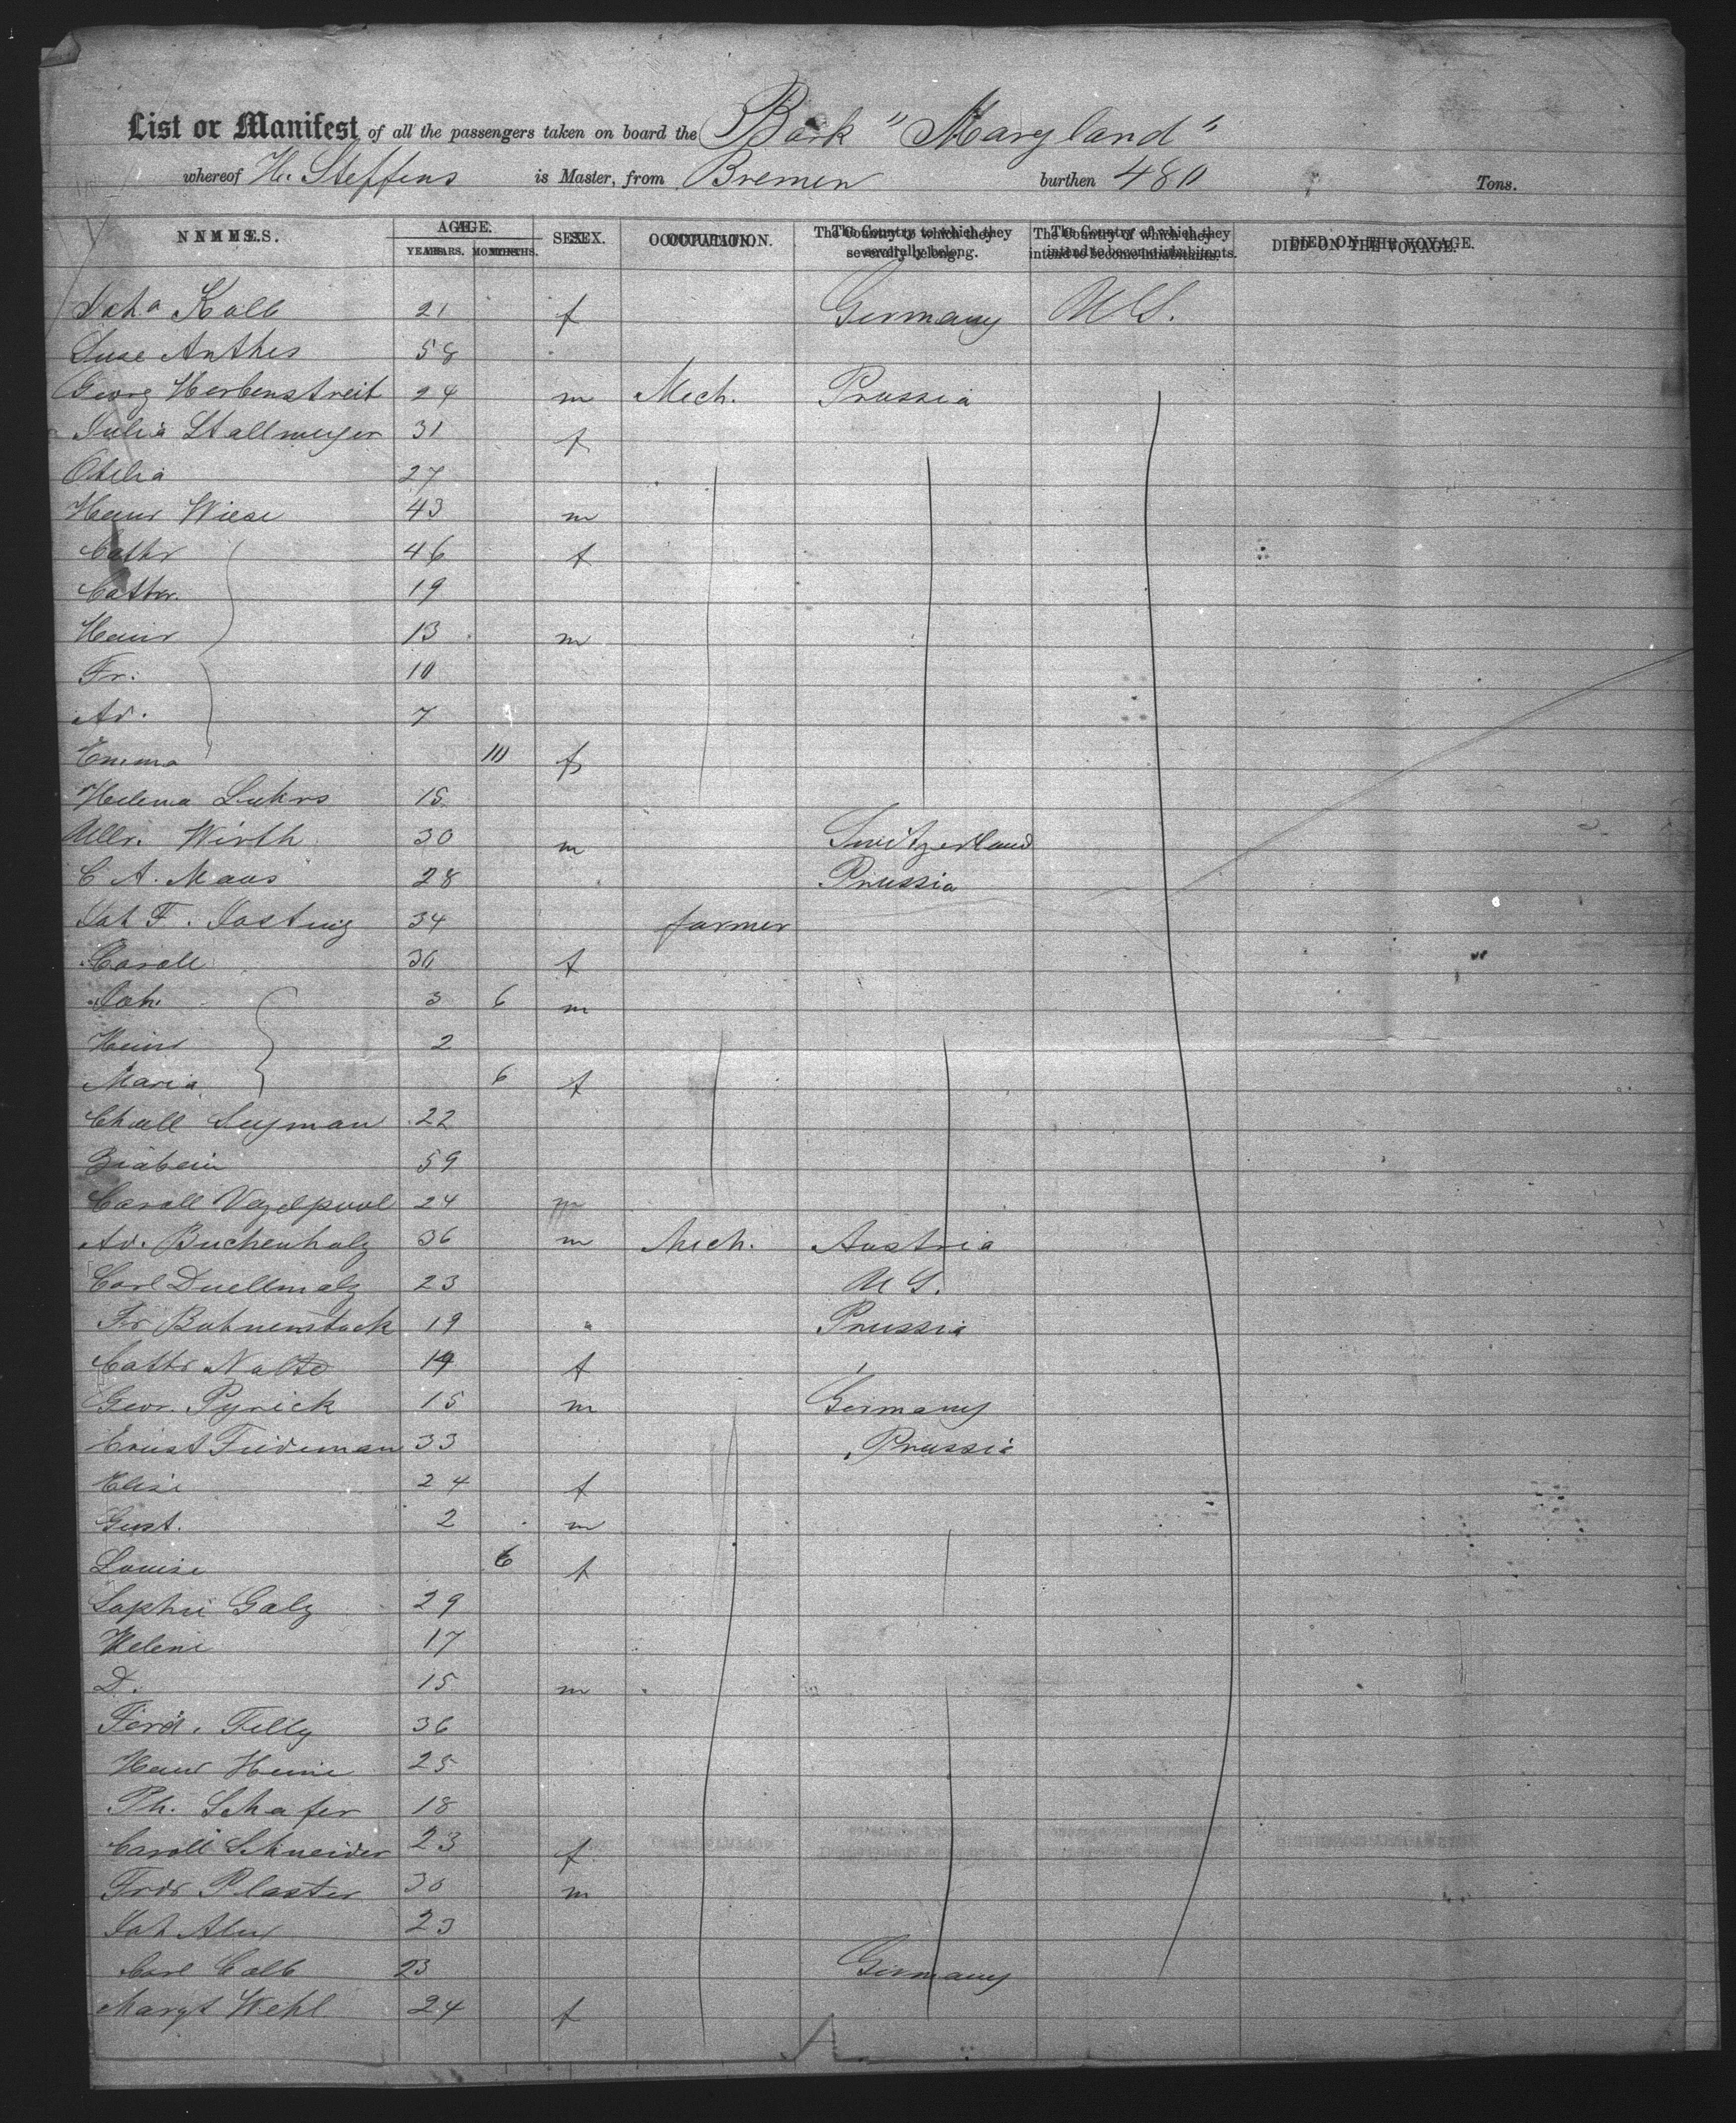 List or Manifest of all the passengers taken on board the Bark "Maryland"
whereof H. Steffens is Master, from Bremen burthen 480 Tons.
NAMES. AGE. SEX. OCCUPATION. The Country to which they severally belong. The Country of which they intend to become inhabitants. DIED ON THE VOYAGE.
YEARS. MONTHS.
Joha Kalb 21 f Germany U.S.
Luse Anthes 58
Georg Herbenstreit 24 m Mech. Prussia
Julia Stallmeyer 31 f
Otilia 27
Heinr Wiese 43 m
Cathr 46 f
Cathr. 19
Heinr 13 m
Fr. 10
Ad. 7
Emma 10 f
Helena Luhrs 15
Ullr. Wirth 30 m Switzerland
C A. Maas 28 Prussia
Joh F. Josting 34 farmer
Caroll 30 f
Joh. 3 6 m
Heinr 2
Maria 6 f
22
59
Caroll 24 m
Ad. Buchenholz 36 m Mech. Austria
Carl Duellmalz 23 U S.
Fr Bohnenstock 19 " Prussia
Cathr Nolte 19 f
Geor. Pyrick 15 m Germany
Ernst Tiedeman 33 Prussia
Elise 24 f
Gust. 2 m
Louise 6 f
Sophie Galz 29
Helene 17
D. 15 m
Ferd. Tilly 36
Heinr Heine 25
Ph. Schafer 18
Caroll Schneider 23 f
Frdr Plaster 30 m
Joh 23
Carl Calb 23 Germany
Margt Wehl 24 f